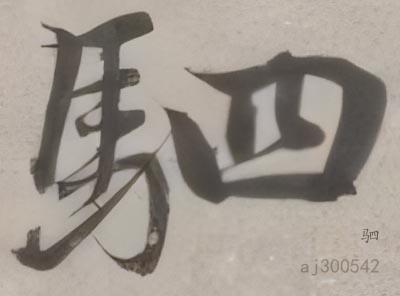 駟
驷
aj300542